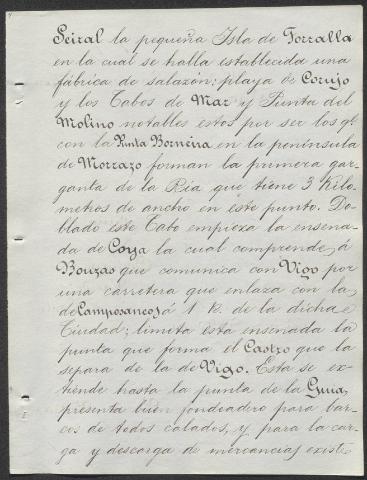 Seiral la pequeña Isla de Torralla
en la cual se halla establecida una
fábrica de salazón; playa de Corujo
y los Cabos de Mar y Punta del
Molino notables estos por ser los q.
con la Punta Borneira en la península
de Morrazo forman la primera gar-
ganta de la Ria que tiene 3 Kiló-
metros de ancho en este punto. Do-
blado este Cabo empieza la ensena-
da de Coya la cual comprende á
Bouzas que comunica con Vigo por
una carretera que enlaza con la
de Camposancos á 1 K. de la dicha
Ciudad; limita esta ensenada la
punta que forma el Castro que la
separa de la de Vigo. Esta se ex-
tiende hasta la punta de la Guia,
presenta buen fondeadero para bar-
cos de todos calados, y para la car-
ga y descarga de mercancias existe